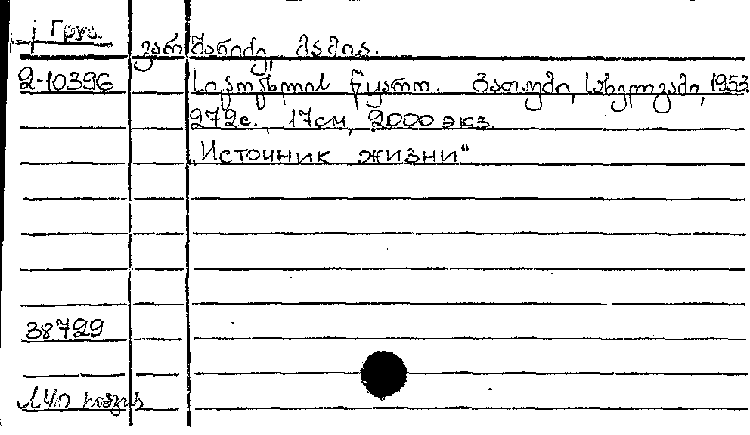 Груз.
ვარშანიძე, მამია.
2-10396 სიცოცხლის წყარო. ბათუმი, სახელგამი, 1953
272с., 17см, 2000 экз.
„Источник жизни“
38729